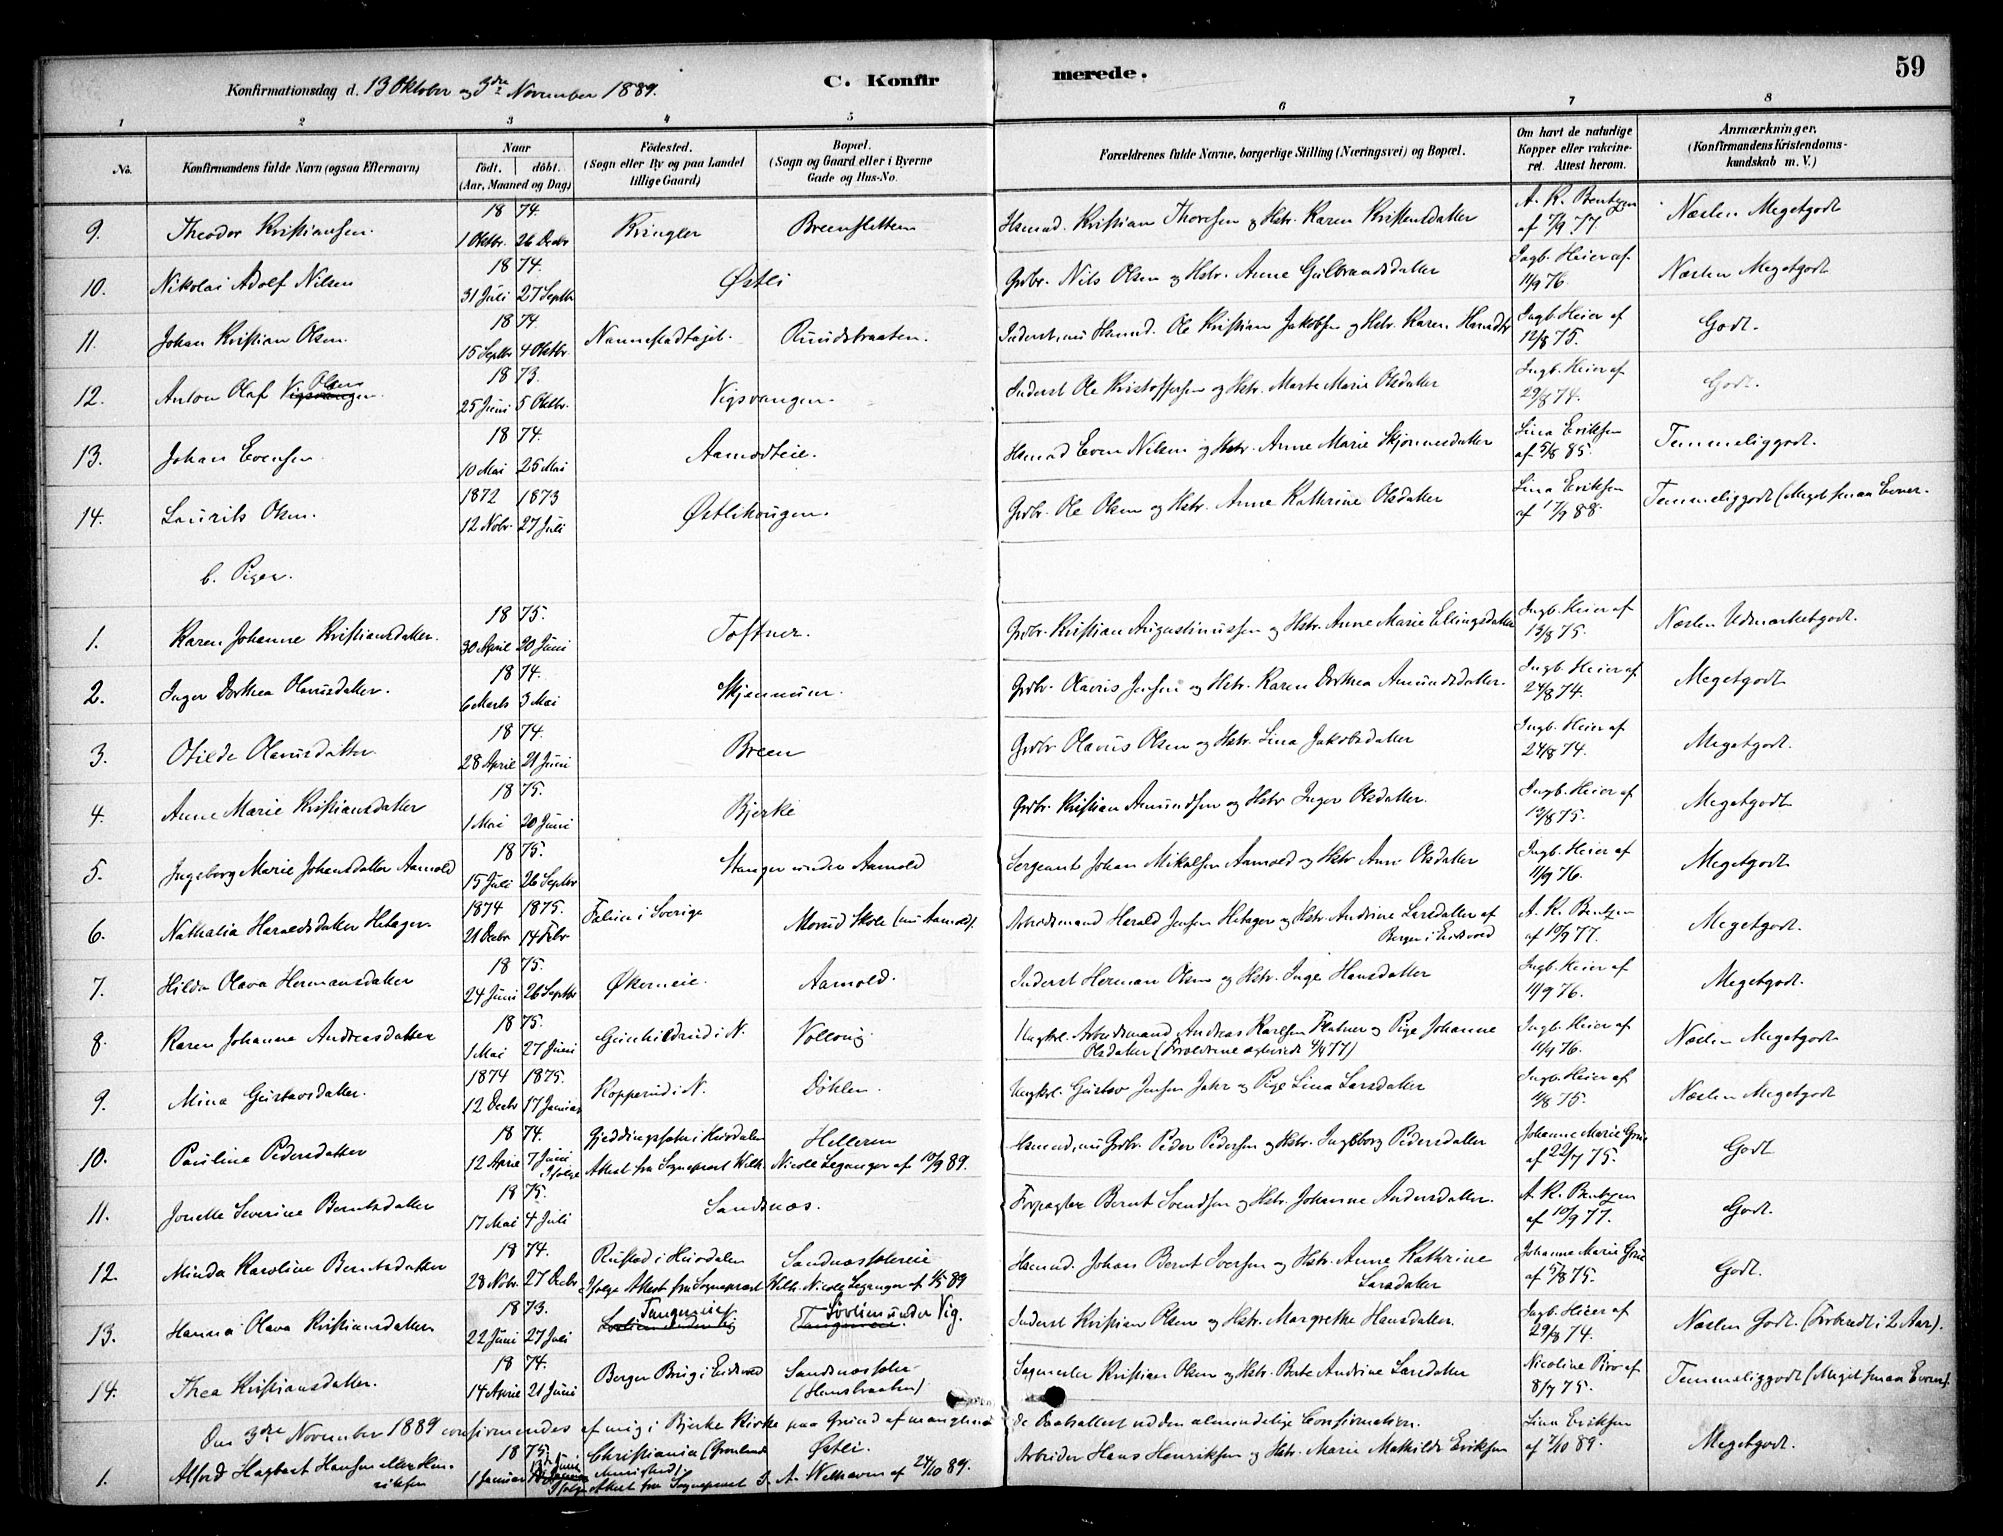 59
Konfirmationsdag d. 13 Oktober og 3die November 1889. C. Konfirmerede.
1 2 3 4 5 6 7 8
No. Konfirmandens fulde Navn (ogsaa Efternavn) Naar födt. döbt. (Aar, Maaned og Dag) Födested. (Sogn eller By og paa Landet tillige Gaard) Bopæl. (Sogn og Gaard eller i Byerne Gade og Hus-No. Forældrenes fulde Navne, borgerlige Stilling (Næringsvei) og Bopæl. Om havt de naturlige Kopper eller vakcineret. Attest herom. Anmærkninger. (Konfirmandens Kristendomskundskab m. V.)
9. Theodor Kristiansen. 1874. 1 Oktbr. 26 Decbr Kringler Breenfletten Husmd. Kristian Thoresen og Hstr. Karen Kristensdatter A. K. Bentzen af 7/9 77. Næsten Megetgodt
10. Nikolai Adolf Nilsen 1874. 31 Juli 27 Septbr Østli Grdbr. Nils Olsen og Hstr. Anne Gulbrandsdatter Ingb. Heier af 11/9 76. Næsten Megetgodt
11. Johan Kristian Olsen. 1874 15 Septbr 4 Oktbr. Nannestadhagel. Ruudsbraaten. Inderst, nu Hsmd. Ole Kristian Jakobsen og Hstr. Karen Hansdtr Ingb. Heier af 12/8 75. Godt.
12. Anton Olaf Vigsvangen Olsen 1873. 25 Juni 5 Oktbr. Vigsvangen. Inderst Ole Kristoffersen og Hstr. Marte Marie Olsdatter Ingb. Heier af 29/8 74. Godt.
13. Johan Evensen. 1874. 10 Mai 25 Mai Aamodteie. Hsmad Even Nilsen og Hstr. Anne Marie Skjønnesdatter Lina Eriksen af 5/8 85. Temmeliggodt.
14. Laurits Olsen. 1872 1873 12 Nobr. 27 Juli Østlihougen. Grdbr. Ole Olsen og Hstr. Anne Kathrine Olsdatter Lina Eriksen af 17/9 88. Temmeliggodt (Meget smaa Evner.
b. Piger.
1. Karen Johanne Kristiansdatter. 1875. 30 April 20 Juni Toftner. Grdbr. Kristian Augustinussen og Hstr. Anne Marie Ellingsdatter Ingb. Heier af 13/8 75. Næsten Udmærketgodt.
2. Inger Dorthea Olavusdatter. 1874. 6 Marts 3 Mai Skjønnum. Grdbr. Olavus Jensen og Hstr. Karen Dorthea Amundsdatter. Ingb. Heier af 24/8 74. Megetgodt
3. Otilde Olavusdatter 1874. 28 April 21 Juni Breen Grdbr Olavus Olsen og Hstr. Lina Jakobsdatter Ingb. Heier af 24/8 74. Megetgodt.
4. Anne Marie Kristiansdatter 1875. 1 Mai 20 Juni Bjerke Grdbr. Kristian Amundsen og Hstr Inger Olsdatter. Ingb. Heier af 12/8 75. Megetgodt.
5. Ingeborg Marie Johansdatter Aamold 1875. 15 Juli 26 Septbr Stanger under Aamold Sergeant Johan Mikalsen Aamold og Hstr Anne Olsdatter Ingb. Heier af 11/9 76. Megetgodt.
6. Nathalia Haraldsdatter Hetager. 1874 1875. 21 Decbr. 14 Febr. Falun i Sverige Morud Skole (nu Aamold). Arbeidsmand Harald Jensen Hetager og Hstr. Andrine Larsdatter af Berger i Eidsvold A. K. Bentzen af 10/9 77. Megetgodt.
7. Hilda Olava Hermansdatter 1875. 24 Juni 26 Septbr Økerneie. Aamold. Inderst Herman Olsen og Hstr. Inge Hansdatter Ingb. Heier af 11/9 76. Megetgodt.
8. Karen Johanne Andreasdatter 1875. 1 Mai 27 Juni Gunhildrud i N. Vollaug Ungkrl. Arbeidsmand Andreas Karlsen Flatner og Pige Johanne Olsdatter (Forældrene ægteviede 4/4 77) Ingb. Heier af 11/9 76. Næsten Megetgodt
9. Mina Gustavsdatter. 1874 1875. 12 Decbr 17 Januar Kopperud i N. Döhlen. Ungkrl. Gustav Jensen Jahr og Pige Lina Larsdatter Ingb. Heier af 11/8 75. Næsten Megetgodt
10. Pauline Pedersdatter 1874. 12 April 7 Juni Gjeddingsæter i Hurdalen Helleren Ifølge Attest fra Sognepræst Wilh. Nicole Leganger af 10/9 89. Husmd, nu Grdbr. Peder Pedersen og Hstr. Ingeborg Pedersdatter Johanne Marie Grue af 22/7 75. Godt
11. Jonette Severine Berntsdatter 1875. 17 Mai 4 Juli Sandsnæs. Forpagter Bernt Svendsen og Hstr. Johanne Andersdatter. A. K. Bentzen af 10/9 77. Godt.
12. Minda Karoline Berntsdatter 1874. 28 Nobr. 27 Decbr Rustad i Hurdalen Sandnæssætereie Ifølge Attest fra Sognepræst Wilh. Nicole Leganger af 4/5 89 Hsmad. Johan Bernt Iversen og Hstr. Anne Kathrine Larsdatter Johanne Marie Grue af 5/8 75. Godt.
13. Hanna Olava Kristiansdatter 1873. 22 Juni 27 Juli Tangeneie Sørlien under Vig Sørlien under Vig. Tangeneie. Inderst Kristian Olsen og Hstr. Margrethe Hansdatter. Ingb. Heier af 29/8 74. Næsten Godt. (Forberedt i 2 Aar).
14. Thea Kristiansdatter. 1874. 14 April 21 Juni Berger Brug i Eidsvold Sandsnæssæter (Hansbraaten) Sagmester Kristian Olsen og Hstr. Berte Andrine Larsdatter Nicoline Piro af 8/7 75. Temmeliggodt (Meget smaa Evner).
Den 3die November 1889 confirmendes af mig i Bjerke Kirke paa Grund af manglende Daabsattest ved den almindelige Confirmation.
1. Alfred Hagbart Hansen eller Henriksen 1875. 1 Januar 13 Juni Christiania (Grønland Menighed) Østli. Ifølge Attest fra Sognepræst J. A. Welhaven af 24/10 89. Arbeider Hans Henriksen og Hstr. Marie Mathilde Eriksen Lina Eriksen af 7/10 89. Megetgodt.